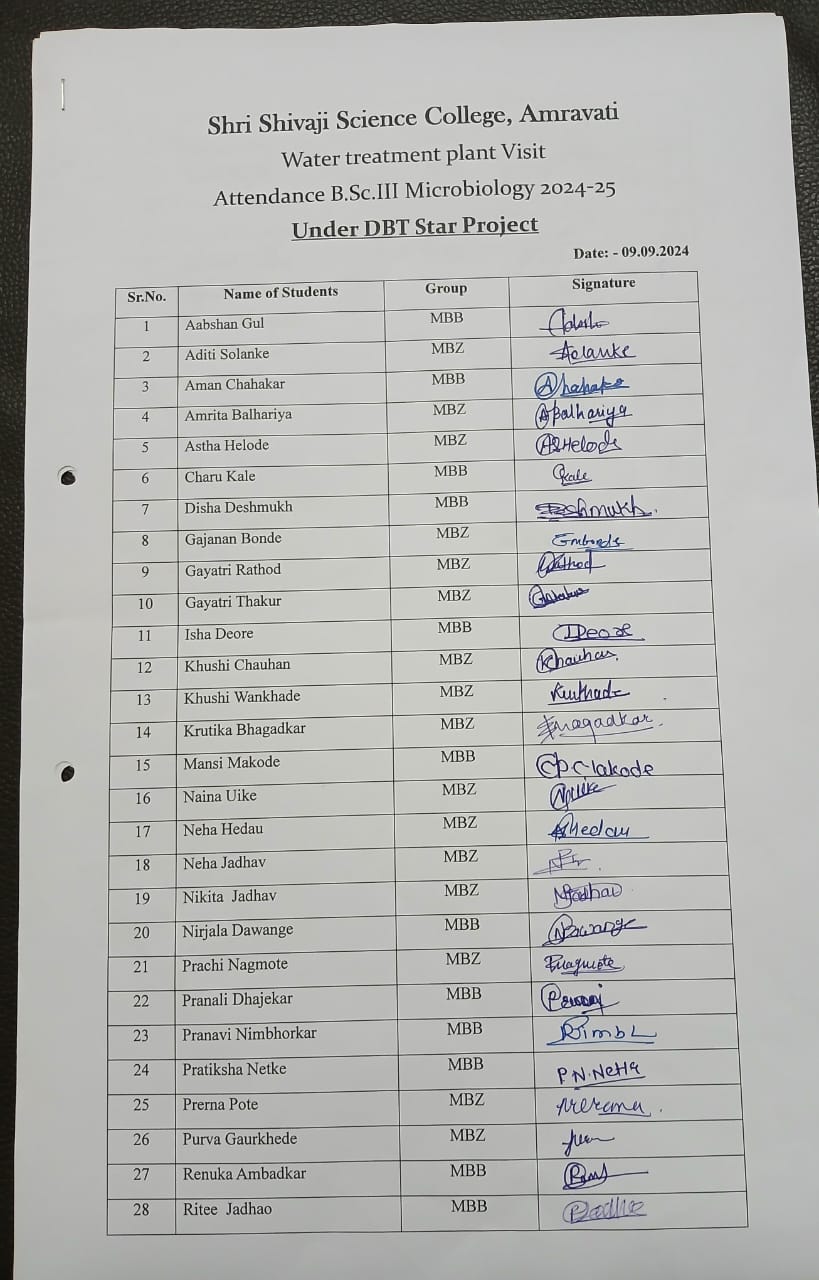 Shri Shivaji Science College, Amravati
Water treatment plant Visit
Attendance B.Sc.III Microbiology 2024-25
Under DBT Star Project
Date: - 09.09.2024
Sr.No. Name of Students Group Signature
1 Aabshan Gul MBB
2 Aditi Solanke MBZ
3 Aman Chahakar MBB
4 Amrita Balhariya MBZ
5 Astha Helode MBZ ASHelode
6 Charu Kale MBB Kale
7 Disha Deshmukh MBB Deshmukh.
8 Gajanan Bonde MBZ
9 Gayatri Rathod MBZ Rathod
10 Gayatri Thakur MBZ
11 Isha Deore MBB IDeore
12 Khushi Chauhan MBZ KChauhan.
13 Khushi Wankhade MBZ
14 Krutika Bhagadkar MBZ
15 Mansi Makode MBB
16 Naina Uike MBZ
17 Neha Hedau MBZ
18 Neha Jadhav MBZ
19 Nikita Jadhav MBZ NJadhav
20 Nirjala Dawange MBB
21 Prachi Nagmote MBZ Pnagmote
22 Pranali Dhajekar MBB
23 Pranavi Nimbhorkar MBB
24 Pratiksha Netke MBB
25 Prerna Pote MBZ
26 Purva Gaurkhede MBZ
27 Renuka Ambadkar MBB
28 Ritee Jadhao MBB